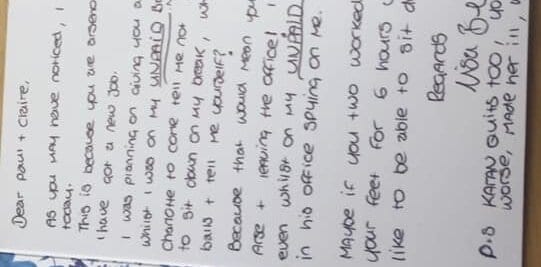 Dear Paul + Claire,
As you may have noticed, I
today.
This is because you are arseho
I have got a new job.
I was planning on giving you a
whilst I was on my UNPAID Br
Charlotte to come tell me not
to sit down on my break, wh
balls + tell me yourself?
Because that would mean you
Arse + leaving the office!
even whilst on my UNPAID
in his office spying on me.
Maybe if you two worked
your feet for 6 hours
like to be able to sit d
Regards
Lisa Be
P.S KARAN QUITS TOO, yo
worse, made her ill,